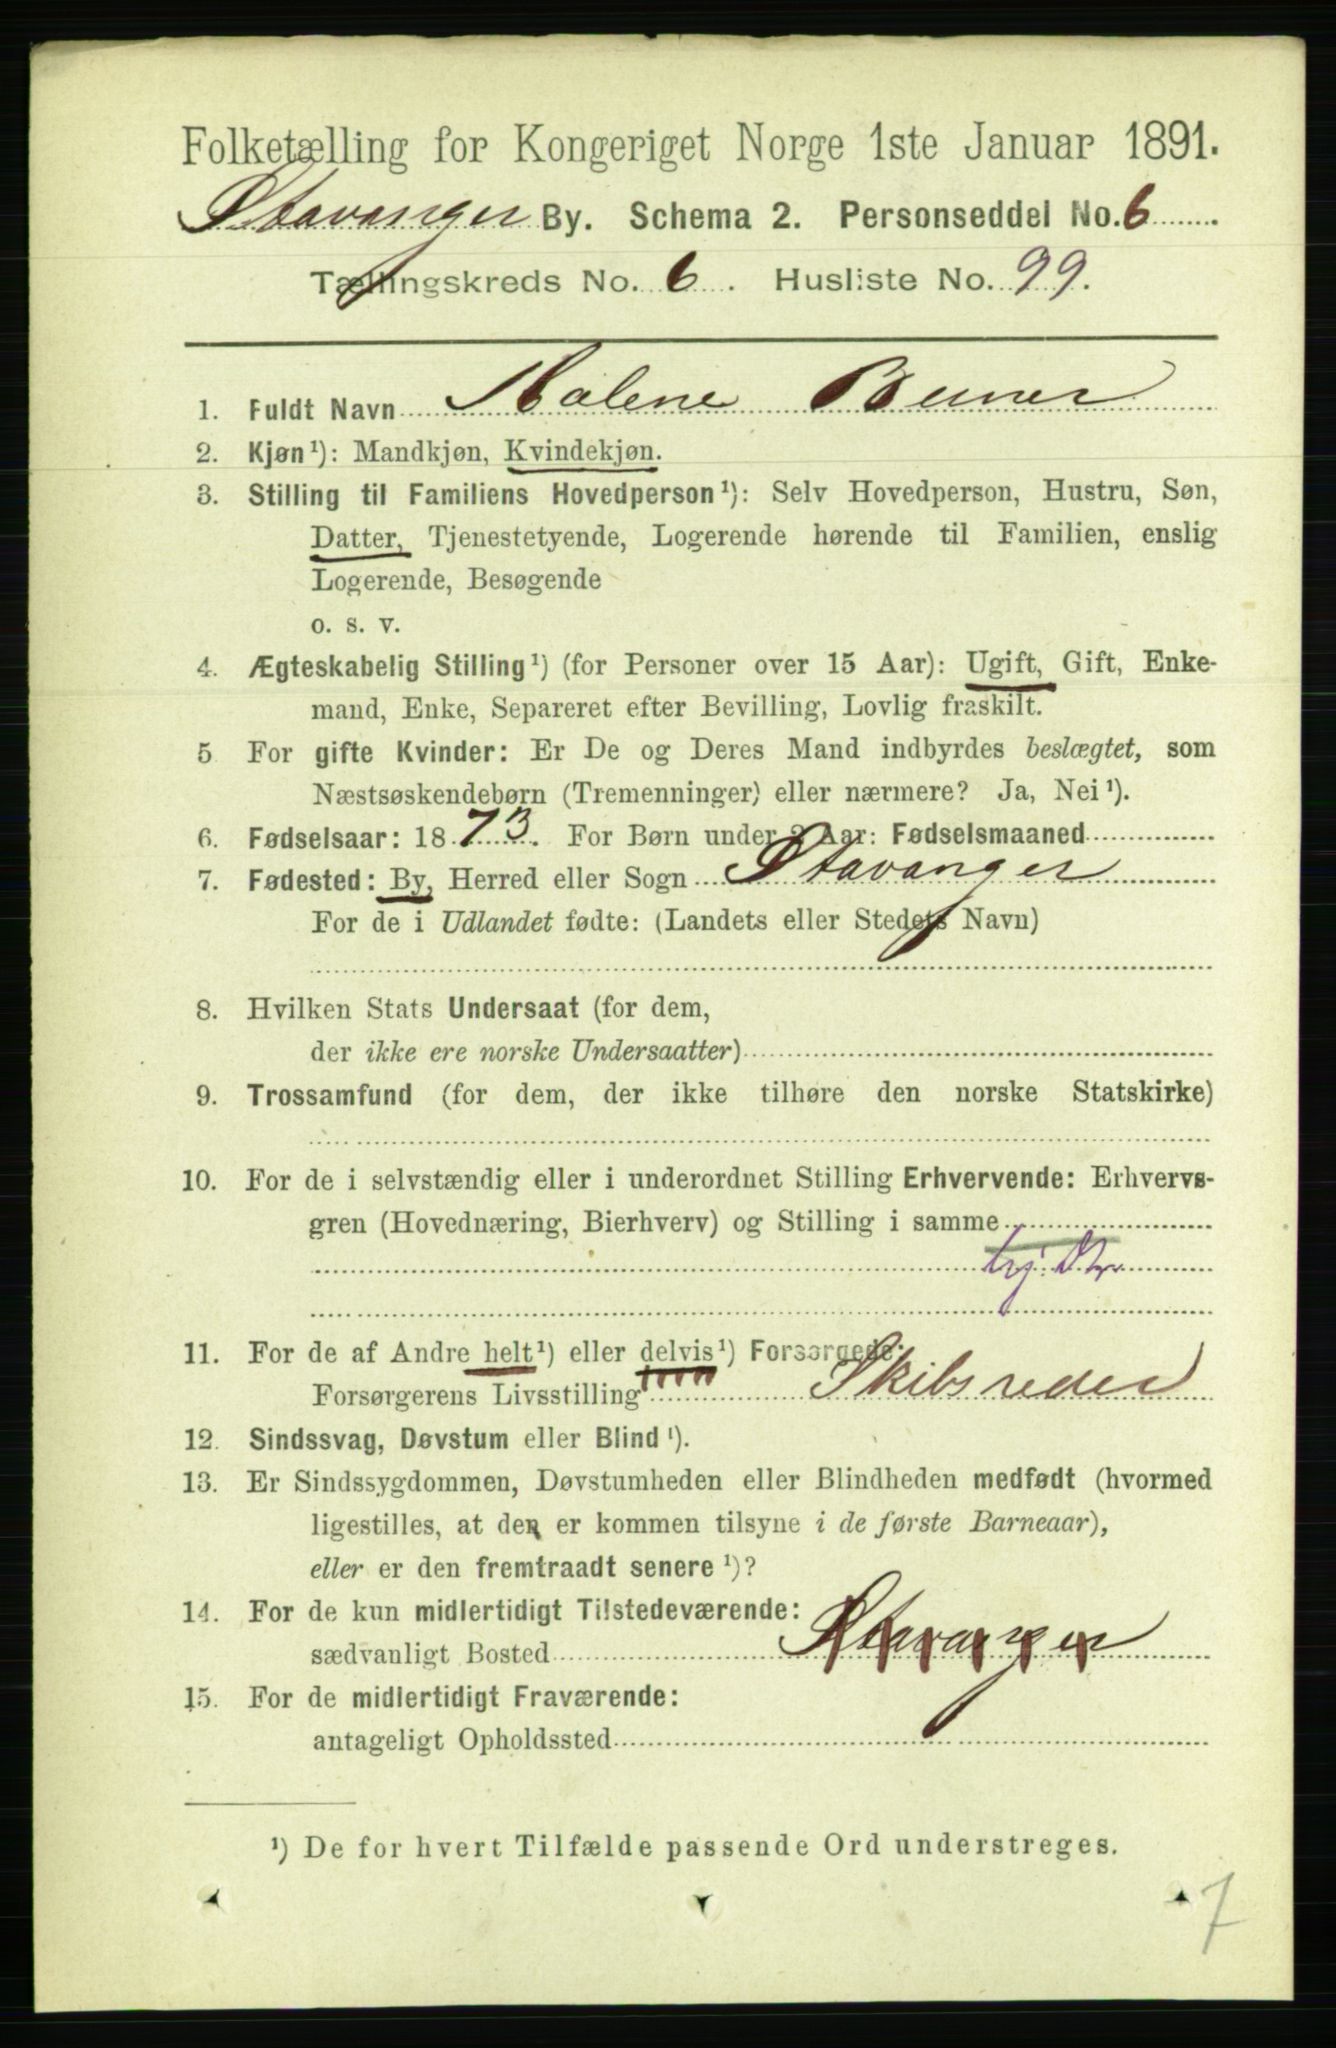 Folketælling for Kongeriget Norge 1ste Januar 1891.
Stavanger By. Schema 2. Personseddel No. 6
Tællingskreds No. 6. Husliste No. 99.
1. Fuldt Navn Malene Berner
2. Kjøn ¹): Mandkjøn, Kvindekjøn.
3. Stilling til Familiens Hovedperson ¹): Selv Hovedperson, Hustru, Søn,
Datter, Tjenestetyende, Logerende hørende til Familien, enslig
Logerende, Besøgende
o. s. v.
4. Ægteskabelig Stilling ¹) (for Personer over 15 Aar): Ugift, Gift, Enke-
mand, Enke, Separeret efter Bevilling, Lovlig fraskilt.
5 For gifte Kvinder: Er De og Deres Mand indbyrdes beslægtet, som
Næstsøskendebørn (Tremenninger) eller nærmere? Ja, Nei ¹).
6. Fødselsaar: 1873. For Børn under 2 Aar: Fødselsmaaned
7. Fødested: By, Herred eller Sogn Stavanger
For de i Udlandet fødte: (Landets eller Stedets Navn)
8. Hvilken Stats Undersaat (for dem,
der ikke ere norske Undersaatter)
9. Trossamfund (for dem, der ikke tilhøre den norske Statskirke)
10. For de i selvstændig eller i underordnet Stilling Erhvervende: Erhvervs-
gren (Hovednæring, Bierhverv) og Stilling i samme
11. For de af Andre helt ¹) eller delvis ¹) Forsørgede:
Forsørgerens Livsstilling Skibsreder
12. Sindssvag, Døvstum eller Blind ¹).
13. Er Sindssygdommen, Døvstumheden eller Blindheden medfødt (hvormed
ligestilles, at den er kommen tilsyne i de første Barneaar),
eller er den fremtraadt senere ¹)?
14. For de kun midlertidigt Tilstedeværende:
sædvanligt Bosted Stavanger
15. For de midlertidigt Fraværende:
antageligt Opholdssted
¹) De for hvert Tilfælde passende Ord understreges.
7